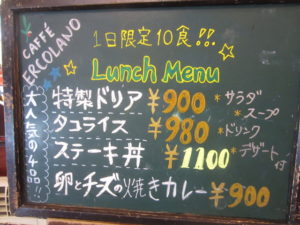 CAFFÉ ERCOLANO
1日限定10食!!
Lunch Menu
大人気の4品!!
特製ドリア ¥900
タコライス ¥980
ステーキ丼 ¥1100
*サラダ
*スープ
*ドリンク
*デザート付
卵とチーズの焼きカレー ¥900